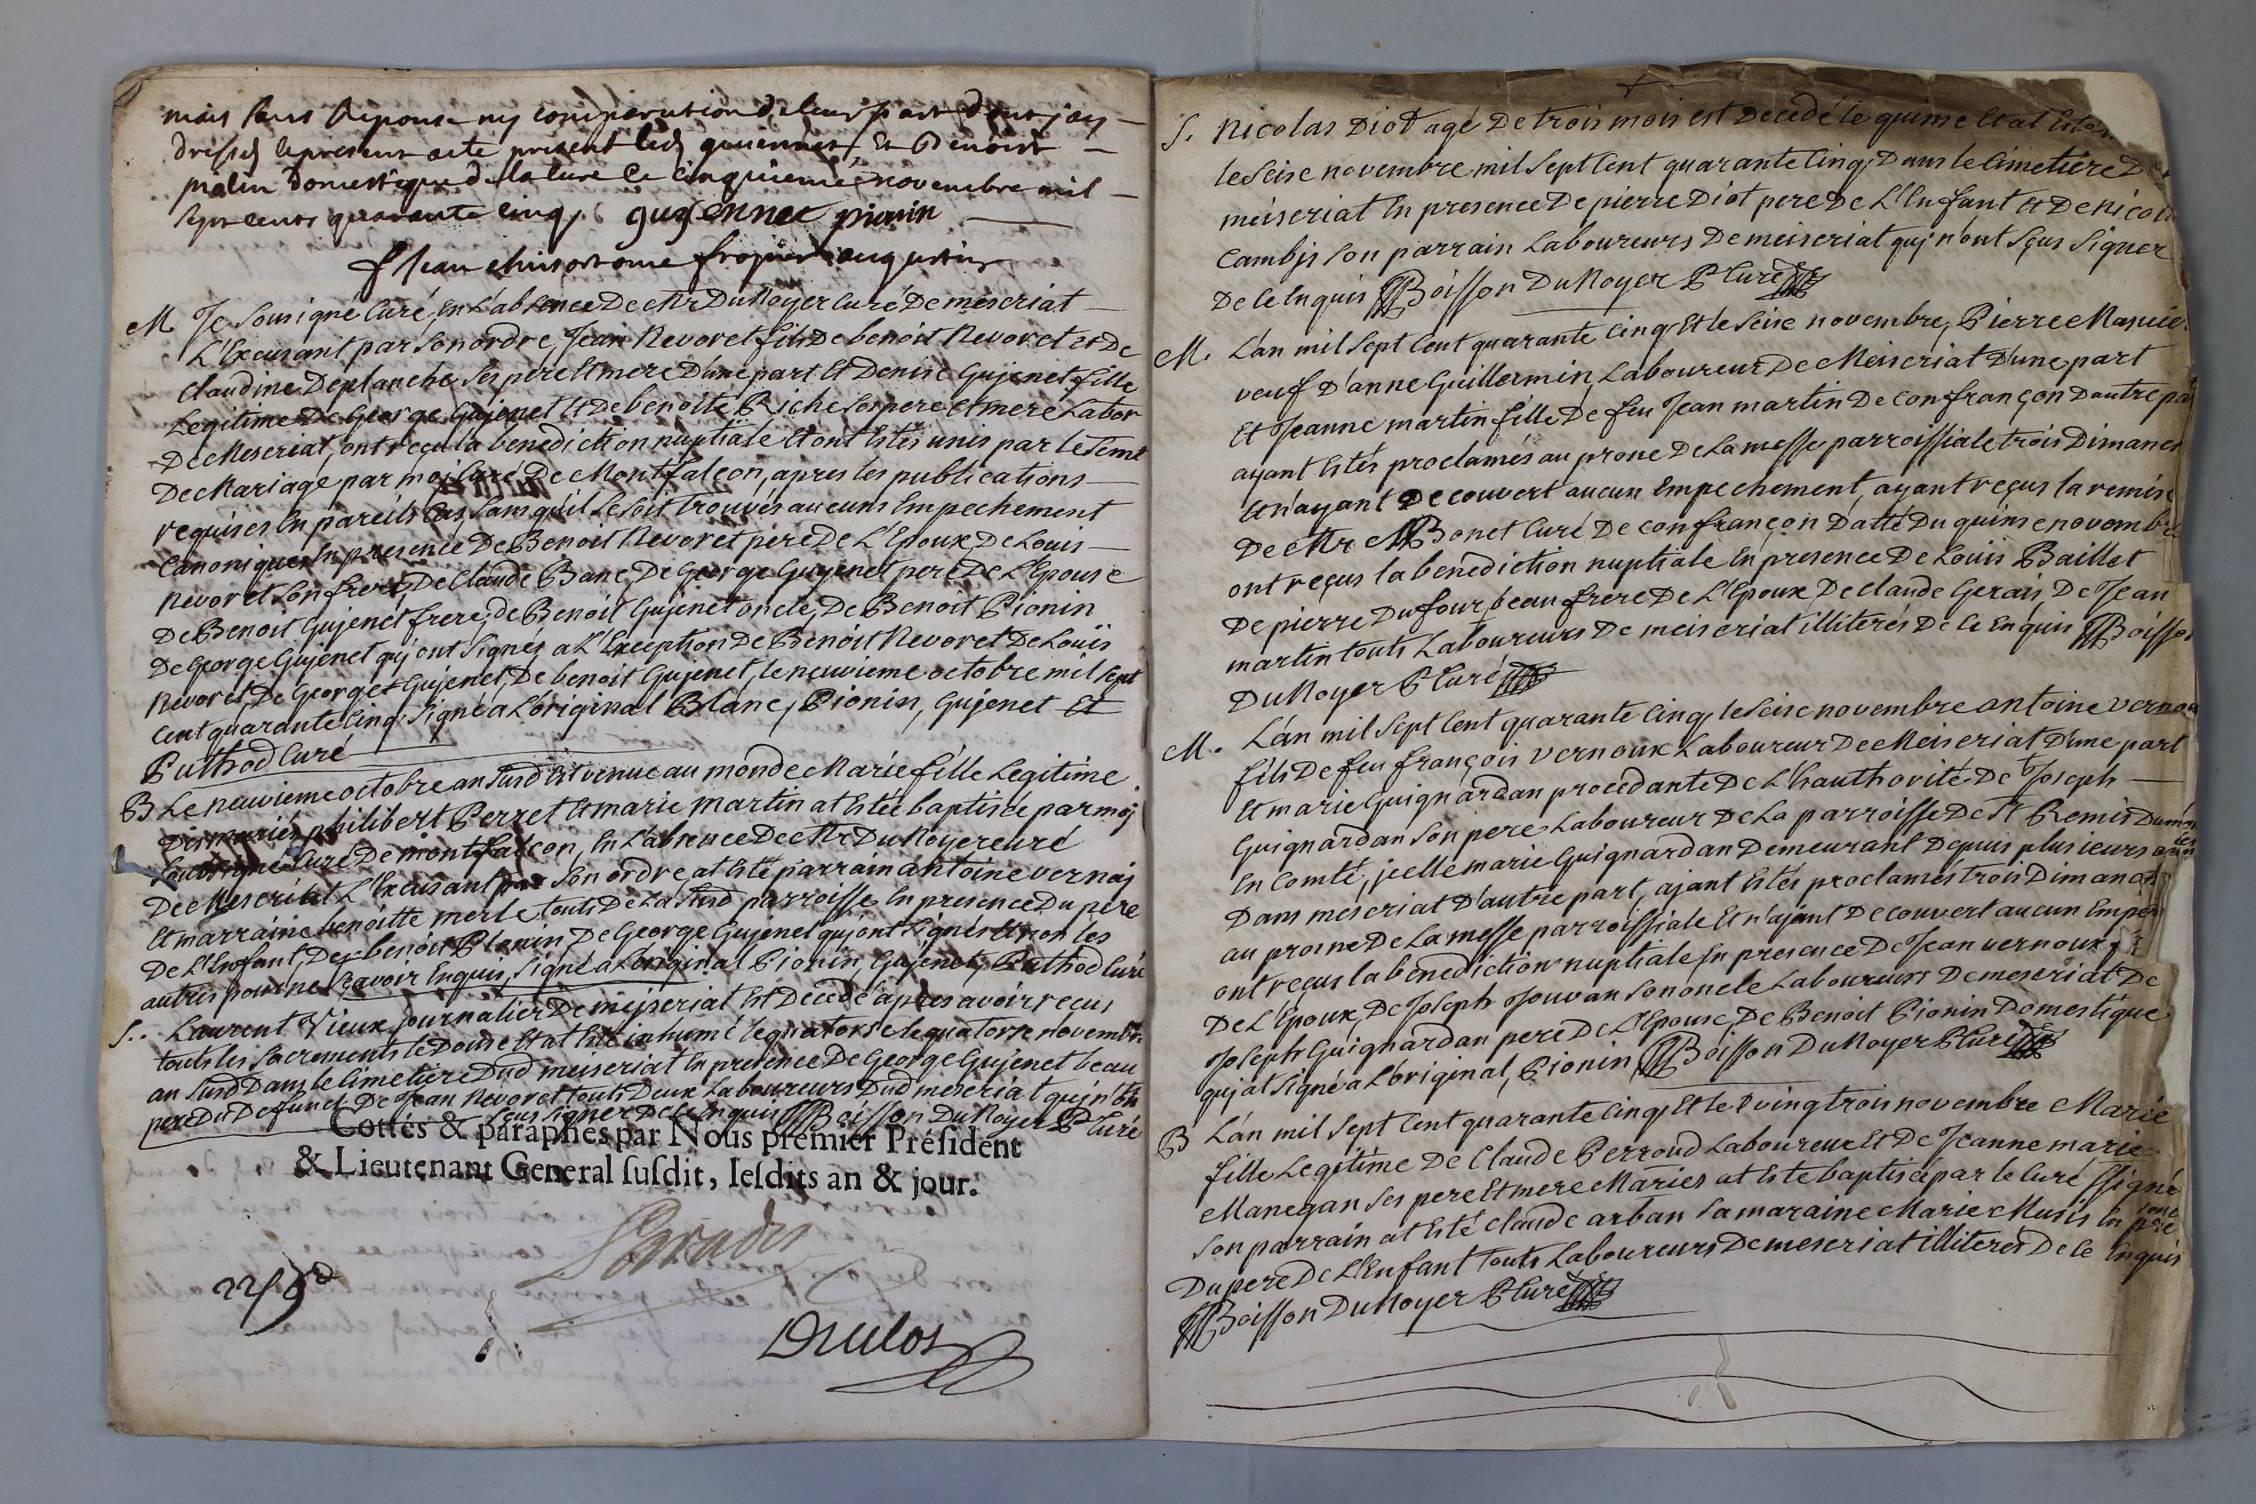 mais sans Reponse ny comparution de leur part dont jay
dressé le present acte présent led guiennet, Et Benoist
pialin domestique de la cure ce cinquieme novembre mil
sept cents quarante cinq. guyennet pionin
f Jean chrisostome augustin
M Je Sousigné Curé, En L'absence De Mr DuNoyer Curé De meseriat
L'Excusant par Son ordre, Jean Revoret fils De benoit Revoret et De
Claudine Deplanche Ses pere Et mere D'une part Et Denise Gujenet fille
Legitime De George Gujenet Et De benoite Riche Ses pere Et mere Labor
De Meseriat, ont reçu la benediction nuptiale Et ont Estés unis par le Semt
De Mariage par moj Curé De Montfalcon, apres les publications
requises En pareils Cas, Sans qu'il Se Soit trouvés aucuns Empechement
Canoniques En presence De Benoit Revoret pere De L'Epoux, De Louis
Revoret Son frere, De Claude Banc, De George Gujenet pere De L'Epouse
De Benoit Gujenet frere, de Benoit Gujenet oncle, De Benoit Pionin
De George Gujenet quj ont Signés a L'Exception De Benoit Revoret De Louis
Revoret, De George Gujenet, De benoit Gujenet, le neuvieme octobre mil Sept
Cent quarante Cinq. Signé a L'original Blanc, Pionin, Gujenet Et
Puthod Curé
B Le neuvieme octobre an Susd Est venue au monde Marie fille Legitime
Des mariés philibert Perret Et marie martin at Estée baptisée par moj
Sousigné Curé De montfalcon, En L'absence De Mr Du Noyer curé
De Meseriat L'Excusant par Son ordre at Esté parrain antoine vernaj
Et marraine benoitte merle touts De La Susd parroisse En presence Du pere
De L'Enfant, De benoit Pionin De George Gujenet quj ont Signés Et non les
autres pour ne Sçavoir Enquis, Signé a L'original Pionin, Gujenet, Puthod Curé
S.. Laurent Vieux journalier De mejseriat Est Decedé apres avoir reçus
touts les Sacrements le Douse Et at Esté inhumé le quatorse le quatorse novembre
an Susd Dans le Cimetiere Dud meiseriat En presence De George Gujenet beau
pere Du Defunct De Jean Revoret touts Deux Laboureurs Dud meseriat quj n'ont
Sçus Signer De Ce Enquis Boisson Du Noyer P Curé
Cottés & paraphés par Nous premier Président
& Lieutenant General susdit, lesdits an & jour.
S. Nicolas Diot agé De trois mois est Decedé le quinse Et at Esté
le Seise novembre mil Sept Cent quarante Cinq, Dans le Cimetiere De
meiseriat En presence De pierre Diot pere De L'Enfant Et De nicolas
Cambjs Son parrain Laboureurs De meiseriat quj n'ont Sçus Signer
De Ce Enquis Boisson Du Noyer P Curé
M. L'an mil Sept Cent quarante Cinq Et le Seise novembre, Pierre
veuf D'anne Guillermin, Laboureur De Meiseriat D'une part
Et Jeanne martin fille De feu Jean martin De Confrançon D'autre part
ayant Estés proclamés au prone De La messe parroissiale trois Dimanches
Et n'ayant De couvert aucun Empechement, ayant reçus la remise
De Mr Bonet Curé De Confrançon Datté Du quinse novembre
ont reçus la benediction nuptiale En presence De Louis Baillet
De pierre Dufour, beau frere De L'Epoux, De Claude Gerais, De Jean
martin touts Laboureurs De meiseriat illiterés De Ce Enquis Boisson
Du Noyer P Curé
M. L'an mil Sept Cent quarante Cinq, le Seise novembre antoine vernoux
fils De feu françois vernoux Laboureur De Meiseriat D'une part
Et marie Guignardan procedante De L'hauthorité De Joseph
Guignardan Son pere Laboureur De La parroisse De St Remis
En Comté, jcelle marie Guignardan Demeurant Depuis plusieurs années
Dans meseriat D'autre part, ajant Estés proclamés trois Dimanches
au prosne De La messe parroissiale Et n'ajant De couvert aucun
ont reçus la benediction nuptiale En presence De Jean vernoux
De L'Epoux, De Joseph Jouvan Son oncle Laboureurs De meseriat De
Joseph Guignardan pere De L'Epouse, De Benoit Pionin Domestique
quj at Signé a L'original, Pionin, Boisson Du Noyer P Curé
B L'an mil Sept Cent quarante Cinq, Et le vingt trois novembre Marie
fille Legitime De Claude Perroud Laboureur Et De Jeanne marie
Manegan Ses pere Et mere Mariés at Esté baptisée par le Curé Ssigné
Son parrain at Esté Claude arban Sa maraine Marie En
Du pere De L'Enfant Touts Laboureurs De meseriat illiterés De Ce Enquis
Boisson Du Noyer P Curé